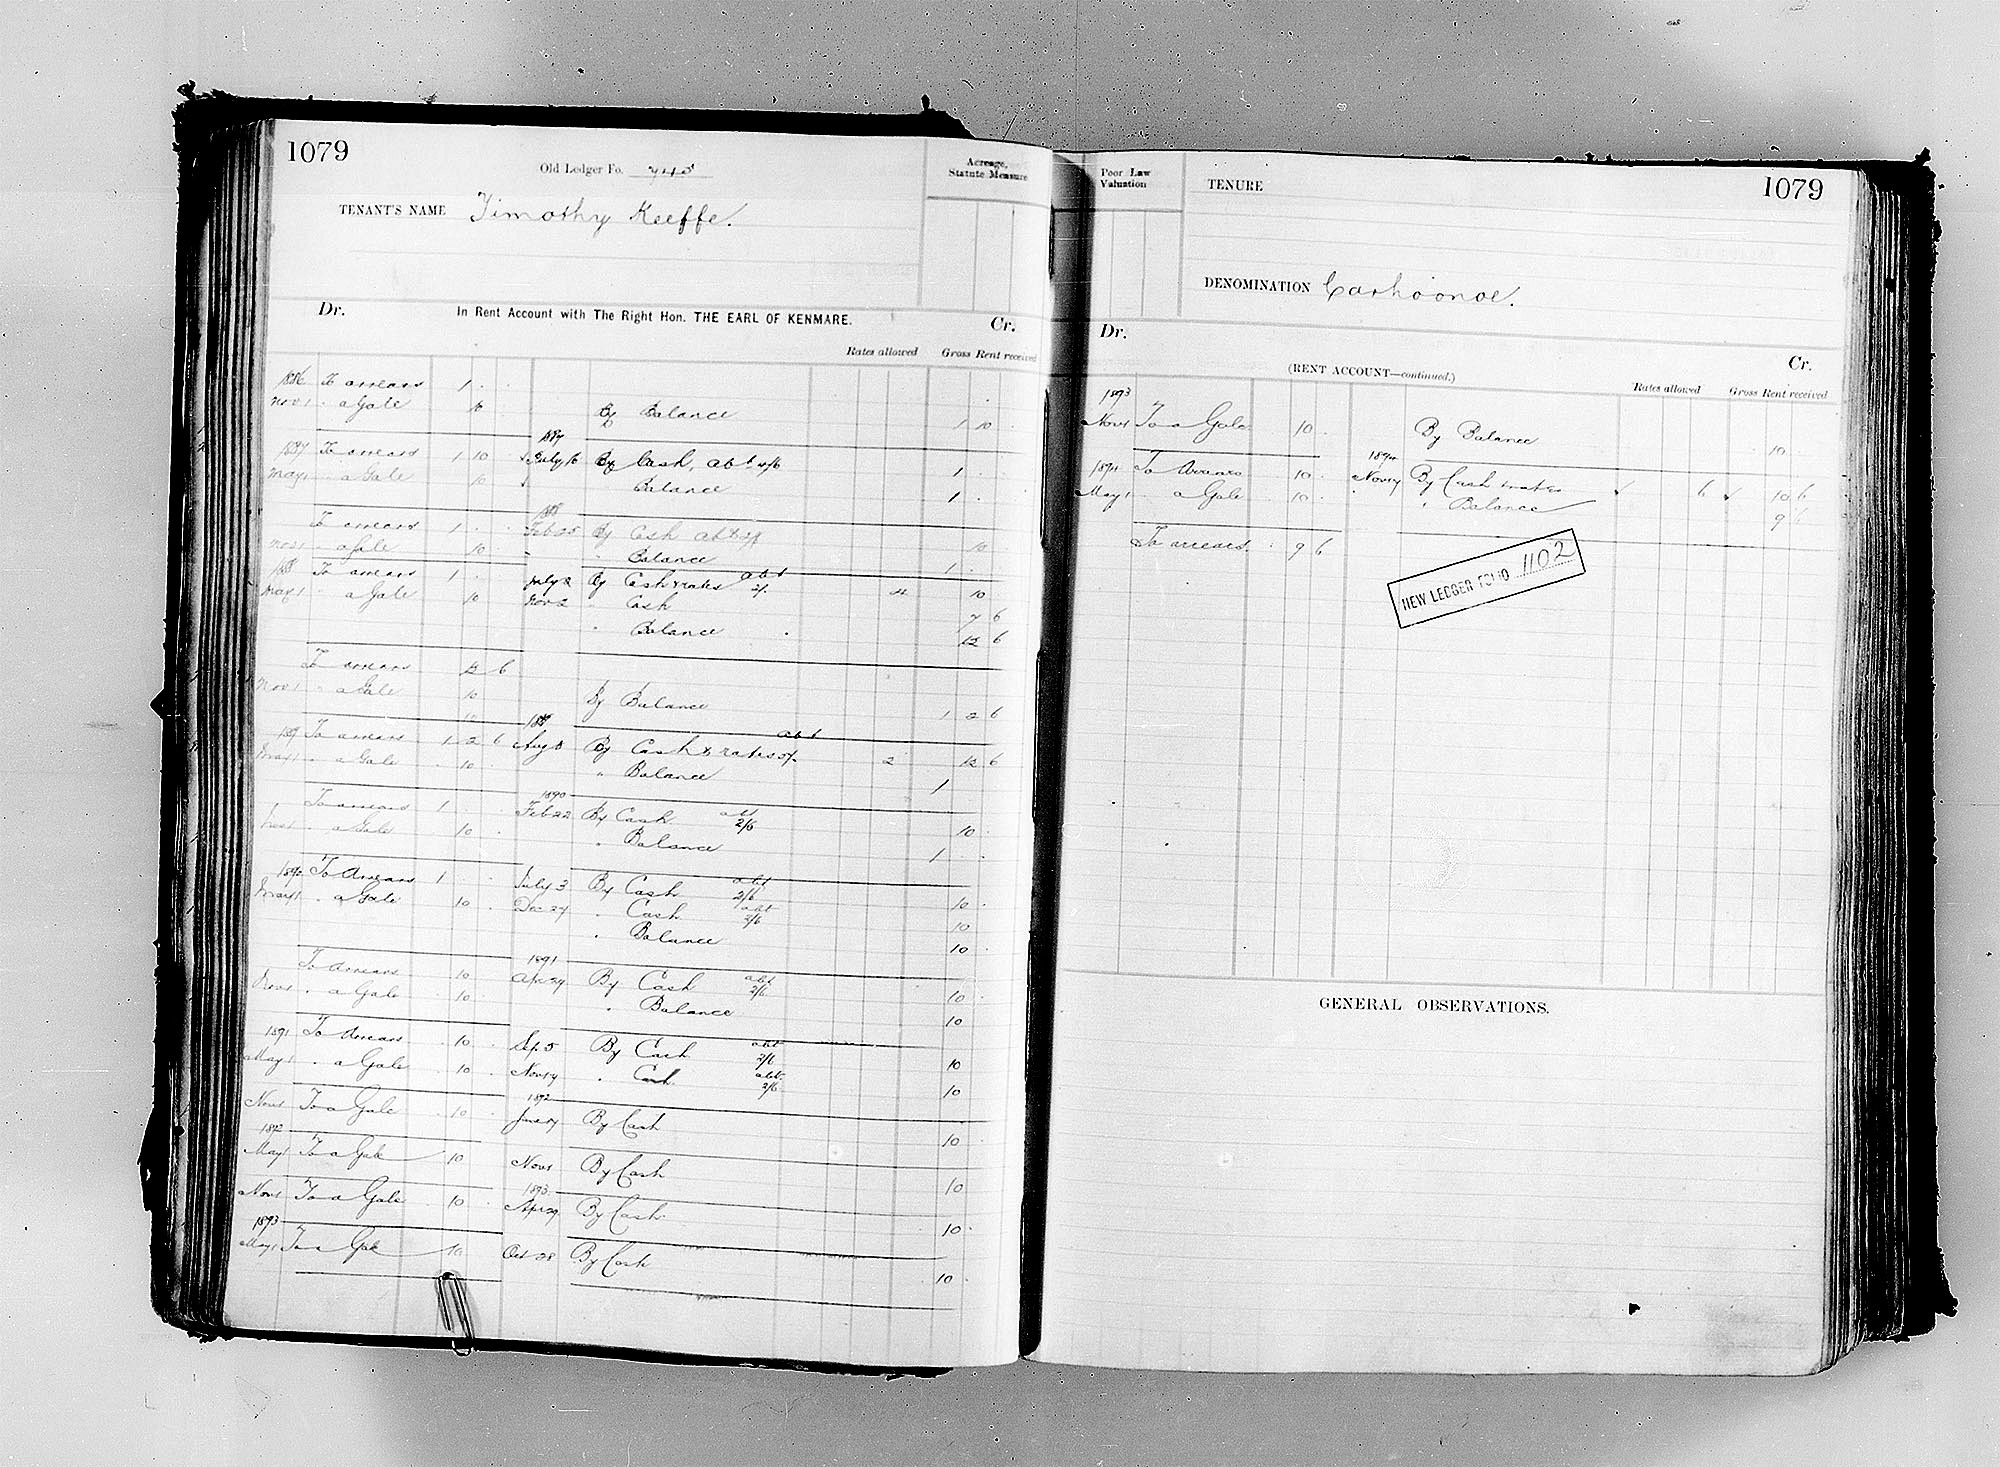 1079
Old Ledger Fo. 740
Acreage,
Statute Measure
TENANT'S NAME Timothy Keeffe.
Dr. In Rent Account with The Right Hon. THE EARL OF KENMARE. Cr.
Rates allowed Gross Rent received
1886 To arrears 1 . .
Nov 1 " a Gale 10 By Balance 1 10 .
1887
1887 To arrears 1 10 . July 16 By Cash, abt 2/6 1 . .
May 1 " a Gale 10 Balance 1 . .
1888
To arrears 1 . . Feb 25 By Cash abt 2/6 10
Nov 1 " a Gale 10 . Balance 1 . .
1888 To arrears 1 . . July 2 By Cash & rates abt 2/. 4 10
May 1 " a Gale 10 Nov 2 " Cash 7 6
" Balance 12 6
To arrears 12 6
Nov 1 " a Gale 10 By Balance 1 2 6
1889
1889 To arrears 1 2 6 Aug 8 By Cash & rates abt 2 12 6
May 1 " a Gale 10 . " Balance 1
1890
To arrears 1 . . Feb 22 By Cash abt 2/6 10 .
Nov 1 " a Gale 10 . " Balance 1 . .
1890 To Arrears 1 . . July 3 By Cash abt 2/6 10 .
May 1 " a Gale 10 . Dec 27 " Cash abt 2/6 10
" Balance 10 .
1891
To Arrears 10 . Apr 29 By Cash abt 2/6 10 .
Nov 1 " a Gale 10 . " Balance 10
1891 To Arrears 10 . Sep 5 By Cash abt 2/6 10
May 1 " a Gale 10 . Nov 17 " Cash abt 2/6 10 .
1892
Nov 1 To a Gale 10 . June 17 By Cash 10 .
1892
May 1 To a Gale 10 Nov 1 By Cash 10 .
1893
Nov 1 To a Gale 10 . Apr 29 By Cash 10 .
1893
May 1 To a Gale 10 Oct 28 By Cash 10 .
Poor Law
Valuation
TENURE
1079
DENOMINATION Carhoonoe.
Dr. Cr.
(RENT ACCOUNT—continued.)
Rates allowed Gross Rent received
1893
Nov 1 To a Gale 10 . By Balance 10 .
1894
1894 To Arrears 10 . Nov 17 By Cash & rates 6 10 6
May 1 " a Gale 10 . " Balance 9 6
To arrears 9 6
NEW LEDGER FOLIO 1102
GENERAL OBSERVATIONS.